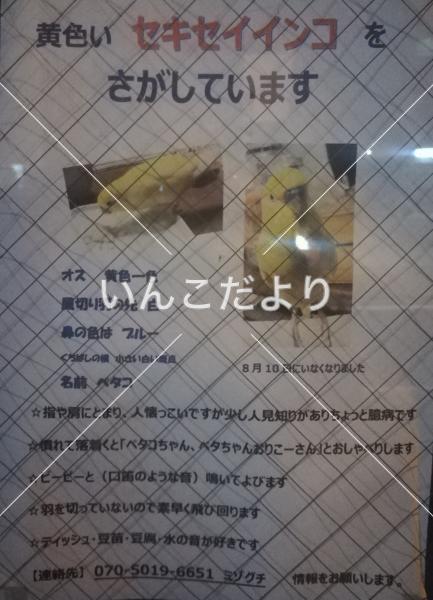 黄色い セキセイインコ を
さがしています
オス 黄色一色
いんこだより
鼻の色は ブルー
くちばしの横 小さい白い斑点
8月10日にいなくなりました
名前 ペタコ
☆指や肩にとまり、人懐っこいですが少し人見知りがありちょっと臆病です
☆慣れて落着くと「ペタコちゃん、ペタちゃんおりこーさん」とおしゃべりします
☆ピーピーと（口笛のような音）鳴いてよびます
☆羽を切っていないので素早く飛び回ります
☆ティッシュ・豆苗・豆腐・水の音が好きです
【連絡先】 070-5019-6651 ミゾグチ 情報をお願いします。